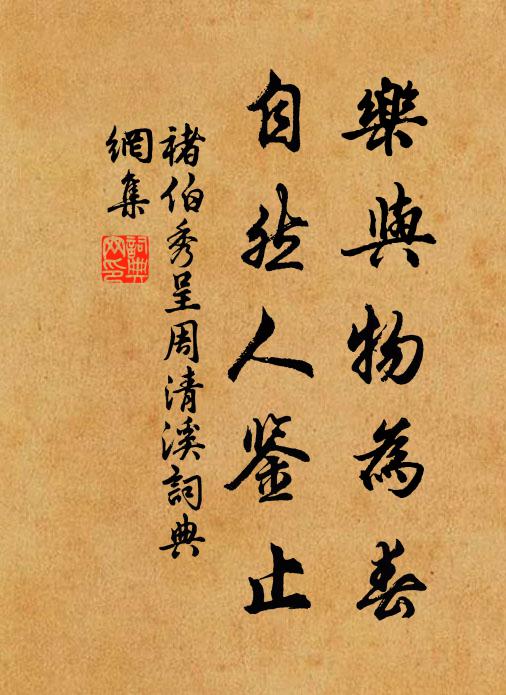 樂與物為春
自然人鑒止
褚伯秀呈周清溪詞典
網集
詞典
网印